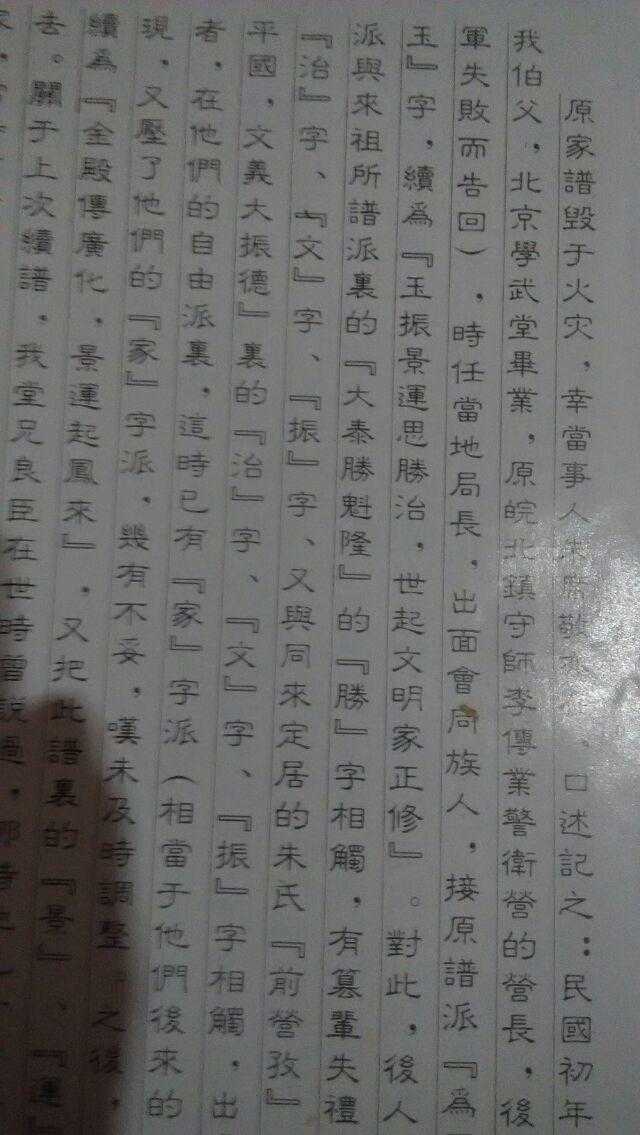 原家譜毀于火灾，幸當事人朱席敬　、口述記之：民國初年
我伯父，北京學武堂畢業，原皖北鎮守師李傳業警衛營的營長，後
軍失敗而告回），時任當地局長，出面會同族人，接原譜派『為
玉』字，續為『玉振景運思勝治，世起文明家正修』。對此，後人
派與來祖所譜派裏的『大泰勝魁隆』的『勝』字相觸，有篡輩失禮
『治』字、『文』字、『振』字、又與同來定居的朱氏『前營孜』
平國，文義大振德』裏的『治』字、『文』字、『振』字相觸，出
者，在他們的自由派裏，這時已有『家』字派（相當于他們後來的
現，又壓了他們的『家』字派，幾有不妥，嘆未及時調整。之後，
續為『金殿傳廣化，景運起鳳來』，又把此譜裏的『景』、『運』
去。關于上次續譜，我堂兄良臣在世時曾說過，那時